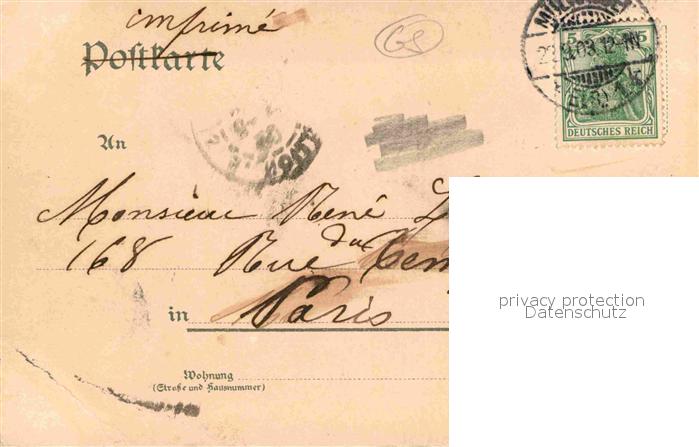 imprimé
Postkarte
GS
5 5
DEUTSCHES REICH
An
Monsieur René
168 Rue du
in Paris
Wohnung
(Straße und Hausnummer)
privacy protection
Datenschutz